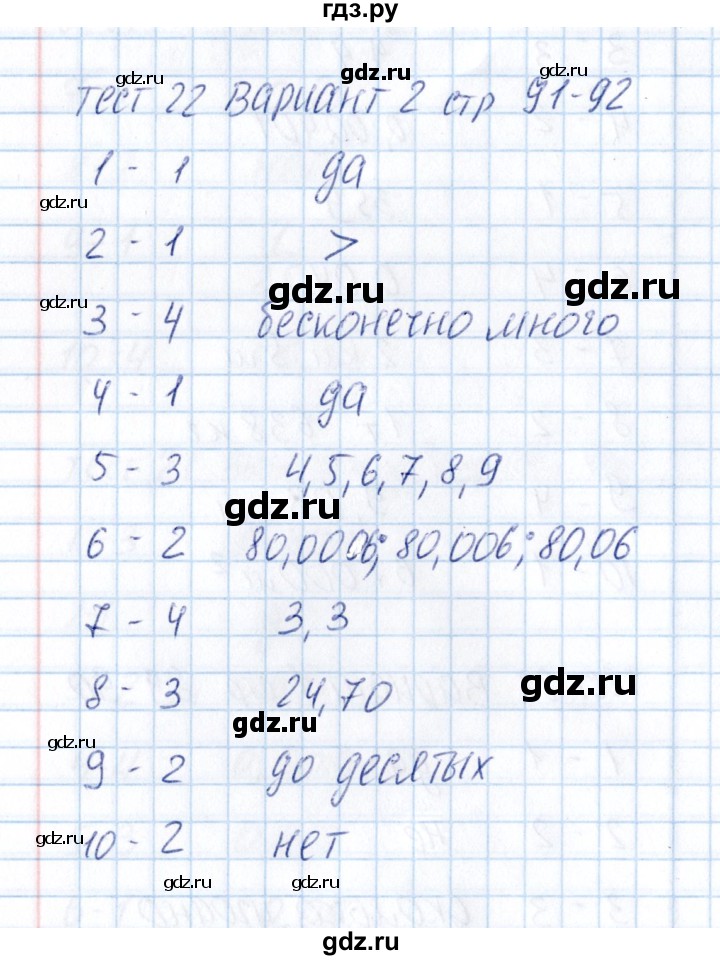 гдз.ру
gdz.ru gdz.ru gdz.ru
тест 22 Вариант 2 стр 91-92
1 - 1 да
gdz.ru
2 - 1 >
gdz.ru gdz.ru gdz.ru
3 - 4 бесконечно много
4 - 1 да
5 - 3 4,5,6,7,8,9
gdz.ru
6 - 2 80,0006; 80,006; 80,06
7 - 4 3,3
8 - 3 24,70
gdz.ru gdz.ru gdz.ru
9 - 2 до десятых
10 - 2 нет
gdz.ru
gdz.ru gdz.ru
gdz.ru